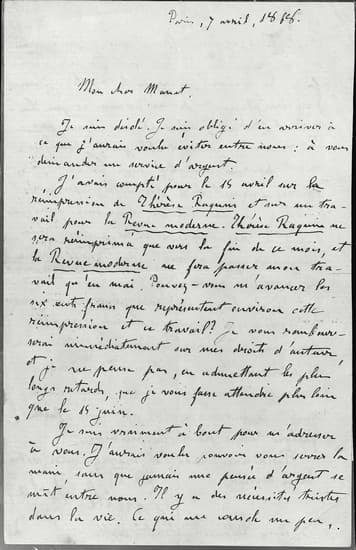 Paris, 7 avril, 1868.
Mon cher Manet.
Je suis désolé. Je suis obligé d'en arriver à
ce que j'aurais voulu éviter entre nous : à vous
demander un service d'argent.
J'avais compté pour le 15 avril sur la
réimpression de Thérèse Raquin et sur un tra-
vail pour la Revue moderne. Thérèse Raquin ne
sera réimprimé que vers la fin de ce mois, et
la Revue moderne ne fera passer mon tra-
vail qu'en mai. Pouvez-vous m'avancer les
six cents francs que représentent environ cette
réimpression et ce travail? Je vous rembour-
serai immédiatement sur mes droits d'auteur,
et je ne pense pas, en admettant les plus
longs retards, que je vous fasse attendre plus loin
que le 15 juin.
Je suis vraiment à bout pour m'adresser
à vous. J'aurais voulu pouvoir vous serrer la
main, sans que jamais une pensée d'argent se
mît entre nous. Il y a des nécessités tristes
dans la vie. Ce qui me console un peu,